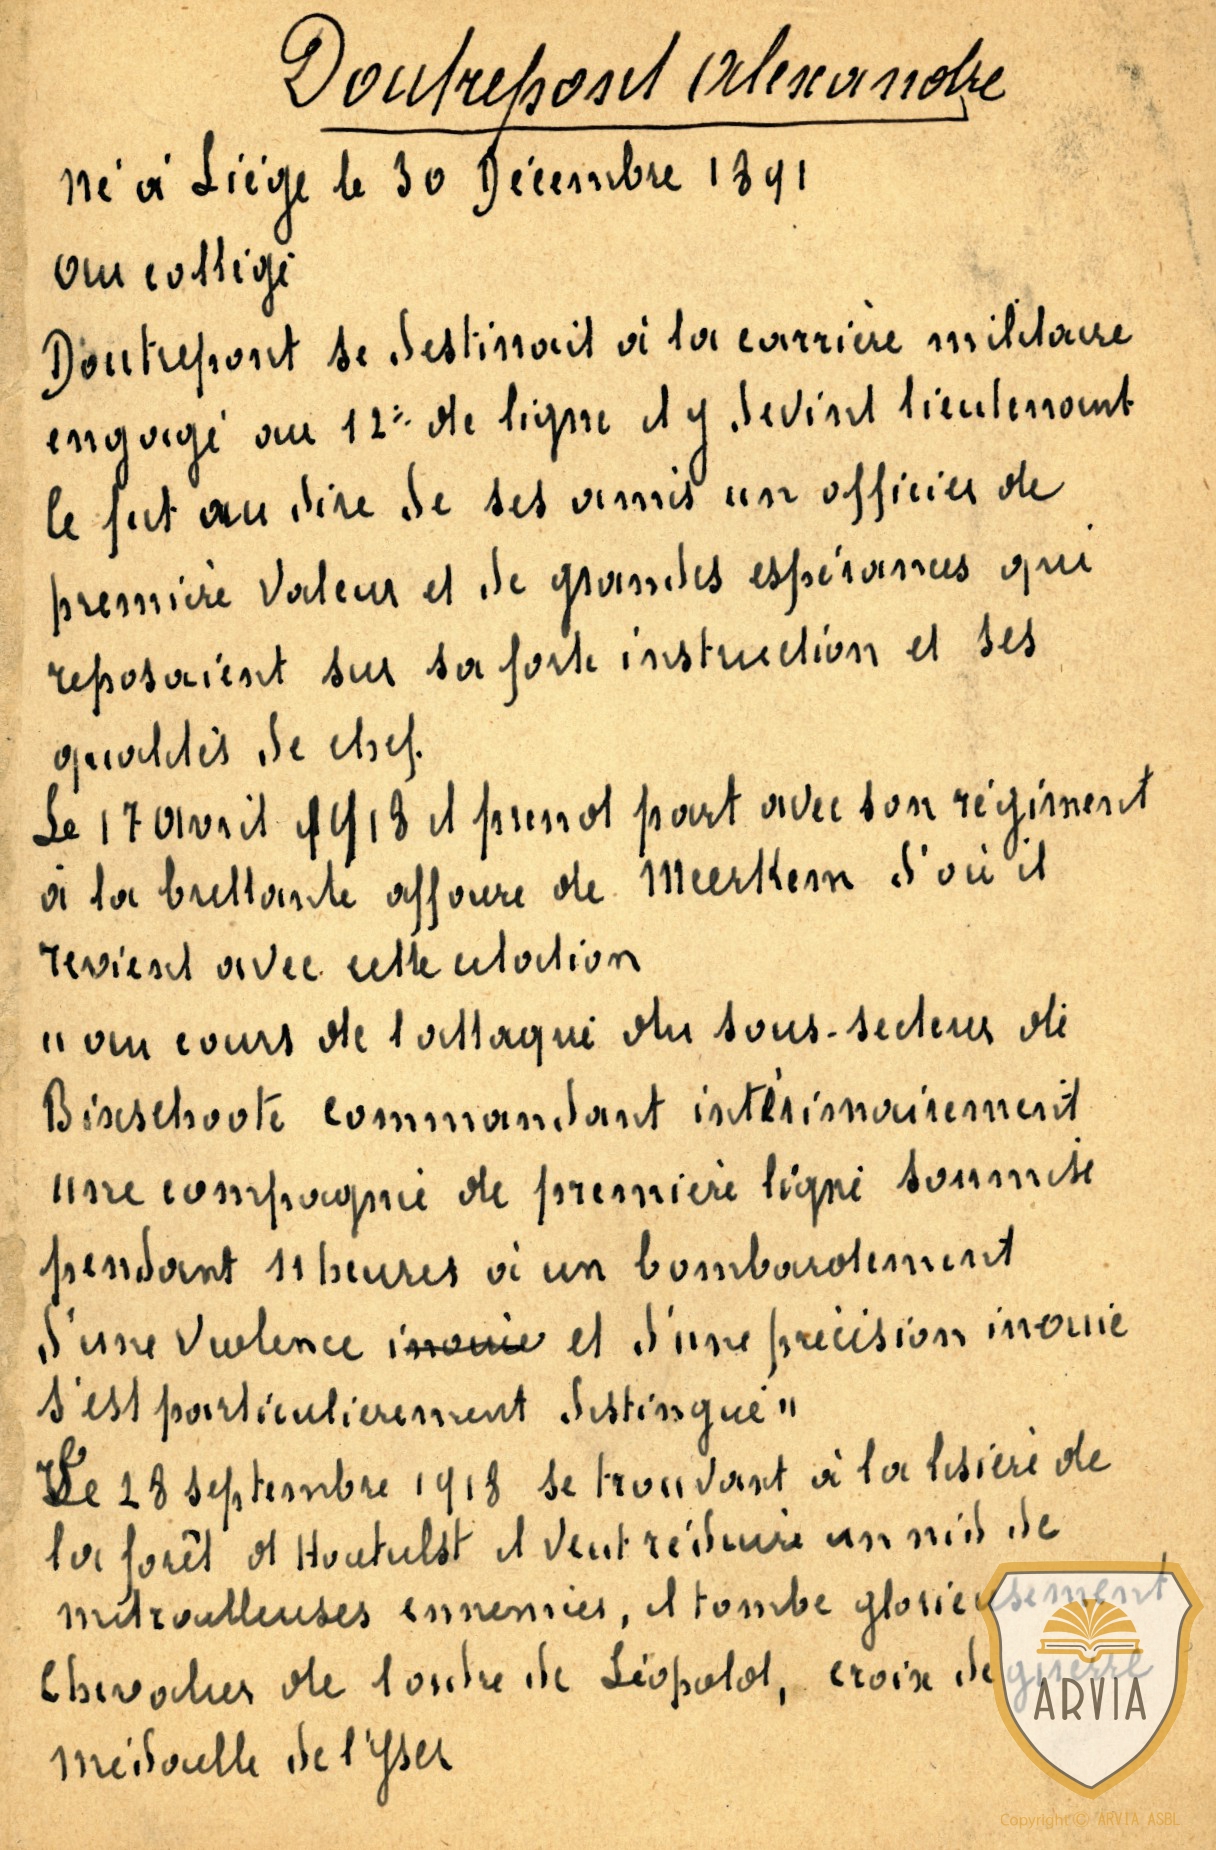 Doutrepont Alexandre
Né à Liège le 30 Décembre 1891
Au collège
Doutrepont se destinait à la carrière militaire
engagé au 12e de ligne il y devint lieutenant
le fut au dire de ses amis un officier de
première valeur et de grandes espérances qui
reposaient sur sa forte instruction et ses
qualités de chef.
Le 17 Avril 1918 il prend part avec son régiment
à la brillante affaire de Meerkem d'où il
revient avec cette citation
" au cours de l attaque du sous-secteur de
Bixschoote commandant intérimairement
une compagnie de première ligne soumise
pendant 11 heures à un bombardement
d'une violence inouie et d'une précision inouie
s'est particulierement distingué "
Le 28 septembre 1918 se trouvant à la lisière de
la forêt d Houtulst il veut réduire un nid de
mitrailleuses ennemies, il tombe glorieusement
Chevalier de l ordre de Léopold, croix de guerre
médaille de l'Yser
ARVIA
Copyright © ARVIA ASBL